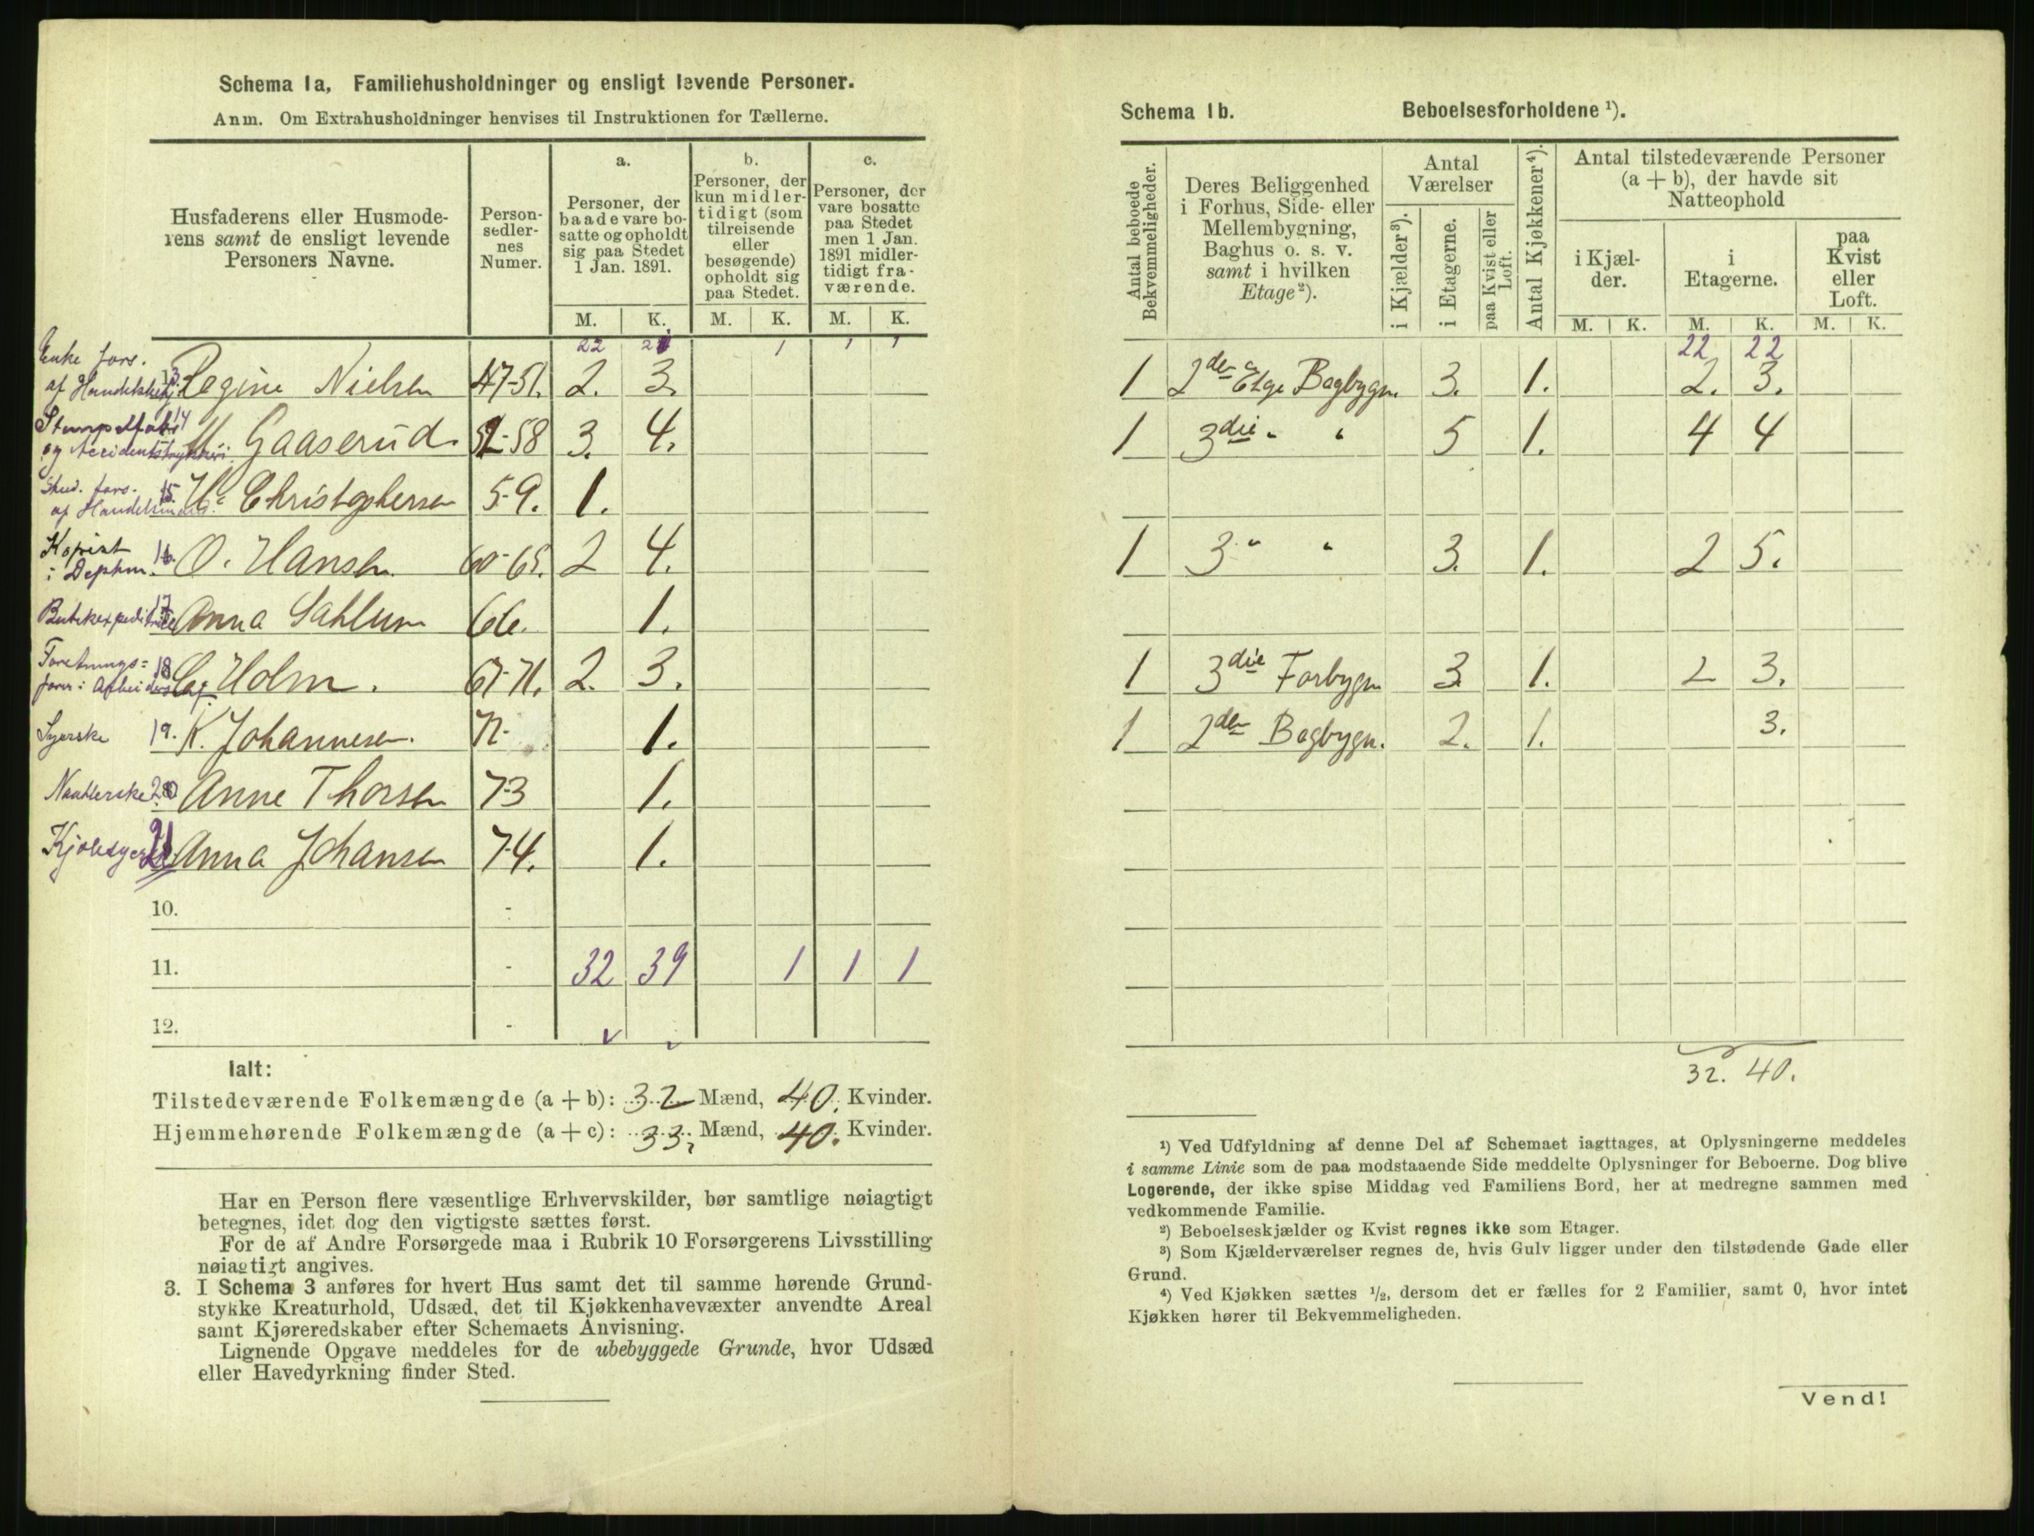 Schema 1a, Familiehusholdninger og ensligt levende Personer.
Anm. Om Extrahusholdninger henvises til Instruktionen for Tællerne.
Husfaderens eller Husmoderens samt de ensligt levende Personers Navne.
Personsedlernes Numer.
a. Personer, der baade vare bosatte og opholdt sig paa Stedet 1 Jan. 1891.
b. Personer, der kun midlertidigt (som tilreisende eller besøgende) opholdt sig paa Stedet.
c. Personer, der vare bosatte paa Stedet men 1 Jan. 1891 midlertidigt fraværende.
M. K. M. K. M. K.
22 21 1 1 1
Enke fors. af Handelsbetj 13. Regine Nielsen 47-51. 2. 3.
Stempelfabr og Accidentstrykkeri 14 M Gaaserud 52-58 3. 4.
Stud. fors. af Handelsmand. 15. H. Christophersen 59. 1.
Kopist i Dephm. 16. O. Hansen 60-65. 2 4.
Butikexpeditrice 17 Anna Sahlum 66. 1.
Foretnings= forer i Arbeidersaf. 18 C. Holm. 67-71. 2. 3.
Syerske 19. K. Johannesen. 72. 1.
20 Anne Thorsen 73 1.
Kjolesyerske 21 Anna Johansen 74. 1.
10. -
11. - 32 39 1 1 1
12. -
Ialt:
Tilstedeværende Folkemængde (a + b): 32 Mænd, 40. Kvinder.
Hjemmehørende Folkemængde (a + c): 33. Mænd, 40. Kvinder.
Har en Person flere væsentlige Erhvervskilder, bør samtlige nøiagtigt
betegnes, idet dog den vigtigste sættes først.
For de af Andre Forsørgede maa i Rubrik 10 Forsørgerens Livsstilling
nøiagtigt angives.
3. I Schema 3 anføres for hvert Hus samt det til samme hørende Grund-
stykke Kreaturhold, Udsæd, det til Kjøkkenhavevæxter anvendte Areal
samt Kjøreredskaber efter Schemaets Anvisning.
Lignende Opgave meddeles for de ubebyggede Grunde, hvor Udsæd
eller Havedyrkning finder Sted.
Schema 1b. Beboelsesforholdene ¹).
Antal beboede Bekvemmeligheder.
Deres Beliggenhed i Forhus, Side- eller Mellembygning, Baghus o. s. v. samt i hvilken Etage ²).
Antal Værelser
i Kjælder ³). i Etagerne. paa Kvist eller Loft.
Antal Kjøkkener ⁴).
Antal tilstedeværende Personer (a + b), der havde sit Natteophold
i Kjælder. i Etagerne. paa Kvist eller Loft.
M. K. M. K. M. K.
22 22
1 2den Etge Bagbygn. 3. 1. 2. 3.
1 3die " " 5 1. 4 4
1 3 " " 3. 1. 2 5.
1 3die Forbygn 3 1. 2 3.
1 2den Bagbygn. 2. 1. 3.
32. 40.
¹) Ved Udfyldning af denne Del af Schemaet iagttages, at Oplysningerne meddeles
i samme Linie som de paa modstaaende Side meddelte Oplysninger for Beboerne. Dog blive
Logerende, der ikke spise Middag ved Familiens Bord, her at medregne sammen med
vedkommende Familie.
²) Beboelseskjælder og Kvist regnes ikke som Etager.
³) Som Kjælderværelser regnes de, hvis Gulv ligger under den tilstødende Gade eller
Grund.
⁴) Ved Kjøkken sættes ½, dersom det er fælles for 2 Familier, samt 0, hvor intet
Kjøkken hører til Bekvemmeligheden.
Vend!